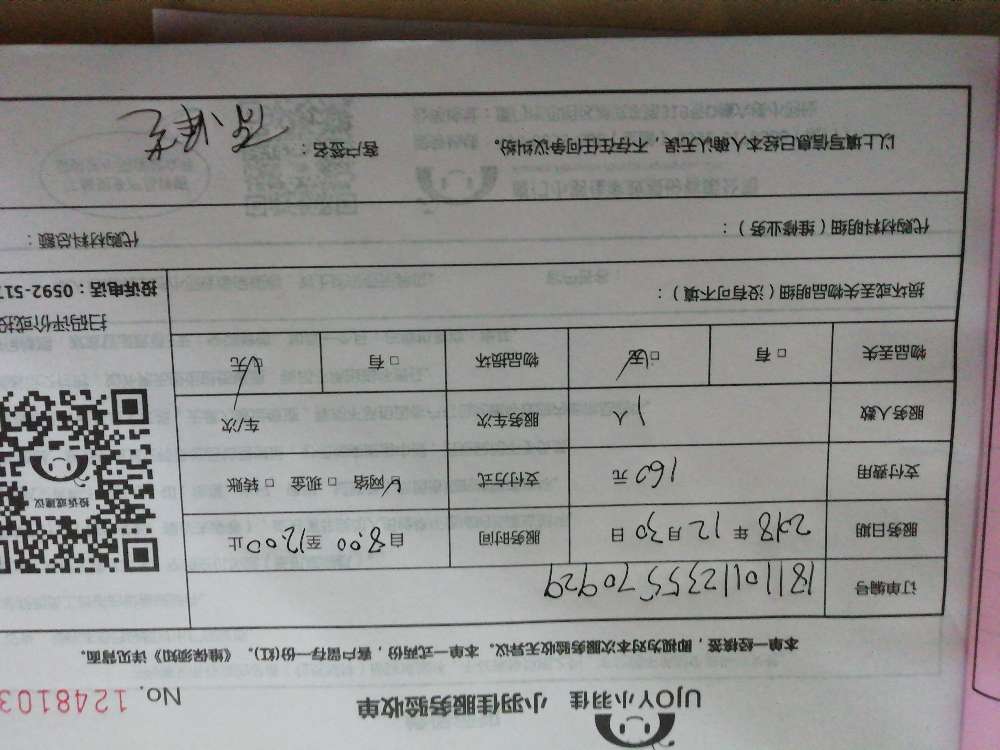 UJOY小羽佳 小羽佳服务验收单 No. 1248103
本单一经接签，即视为对本次服务验收无异议。本单一式两份，客户留存一份(红)。《维保须知》详见背面。
订单编号 18110112355570929
服务日期 2018 年 12 月 30 日 服务时间 自 8:00 至 12:00 止
支付费用 160 元 支付方式 □ 网络 □ 现金 □ 转账
服务人数 1 人 服务车次 车/次
物品丢失 □ 有 □ 无 物品损坏 □ 有 □ 无
投诉或建议
扫码评价或投
损坏或丢失物品明细（没有可不填）：
投诉电话：0592-517
代购材料明细（维修业务）： 代购材料总额：
以上填写信息已经本人确认无误，不存在任何争议纠纷。 客户签名：